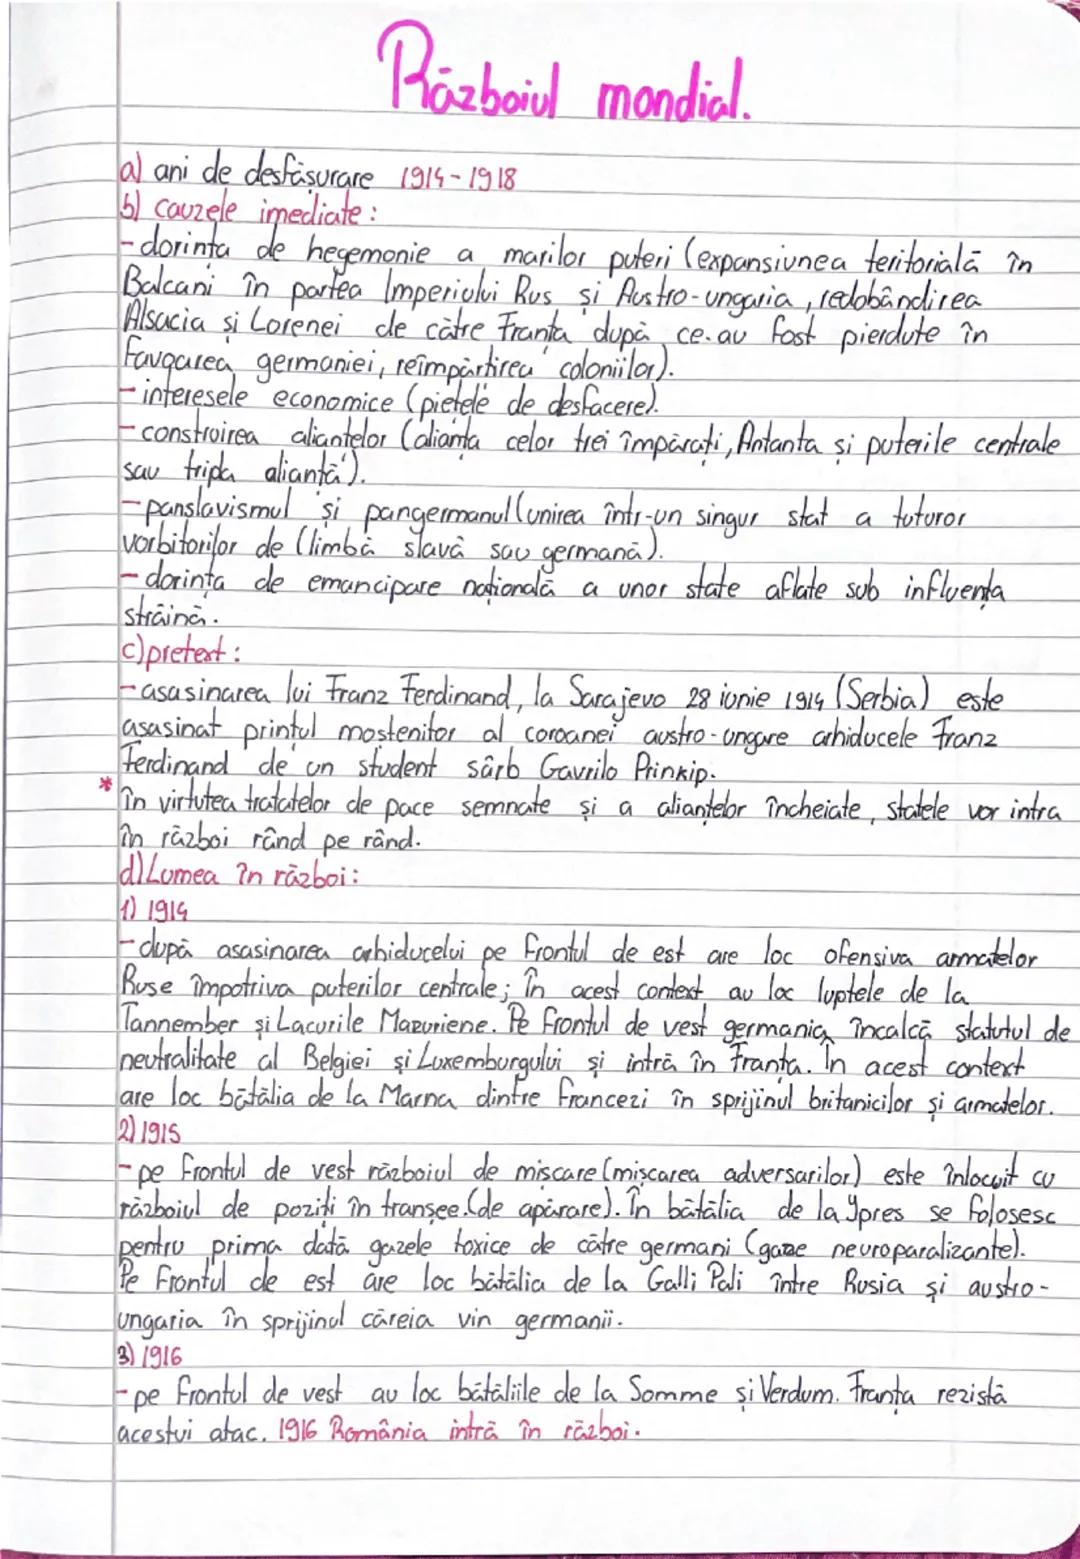 Războiul mondial.
a) ani de desfăşurare 1914-1918
b) cauzele imediate:
-dorinţa de hegemonie a marilor puteri (expansiunea teritorială în
Balcani în partea Imperiului Rus şi Austro-ungaria, redobândirea
Alsacia şi Lorenei de către Franţa după ce au fost pierdute în
favoarea germaniei, reîmpărţirea coloniilor).
-interesele economice (pieţele de desfacere).
-construirea alianţelor (alianţa celor trei împăraţi, Antanta şi puterile centrale
sau tripla alianţă).
-panslavismul şi pangermanul (unirea într-un singur stat a tuturor
vorbitorilor de (limbă slavă sau germană).
-dorinţa de emancipare naţională a unor state aflate sub influenţa
străină.
c) pretext:
-asasinarea lui Franz Ferdinand, la Sarajevo 28 iunie 1914 (Serbia) este
asasinat prinţul mostenitor al coroanei austro-ungare arhiducele Franz
Ferdinand de un student sârb Gavrilo Prinkip.
* în virtutea tratatelor de pace semnate şi a alianţelor încheiate, statele vor intra
în război rând pe rând.
d) Lumea în război:
1) 1914
-după asasinarea arhiducelui pe frontul de est are loc ofensiva armatelor
Ruse împotriva puterilor centrale; în acest context au loc luptele de la
Tannember şi Lacurile Mazuriene. Pe frontul de vest germania încalcă statutul de
neutralitate al Belgiei şi Luxemburgului şi intră în Franţa. În acest context
are loc bătălia de la Marna dintre francezi în sprijinul britanicilor şi armatelor.
2) 1915
-pe frontul de vest războiul de mişcare (mişcarea adversarilor) este înlocuit cu
războiul de poziţi în tranşee.(de apărare). În bătălia de la Ypres se folosesc
pentru prima dată gazele toxice de către germani (gaze neuroparalizante).
Pe frontul de est are loc bătălia de la Galli Pali între Rusia şi austro-
ungaria în sprijinul căreia vin germanii.
3) 1916
-pe frontul de vest au loc bătăliile de la Somme şi Verdum. Franţa rezistă
acestui atac. 1916 România intră în război.